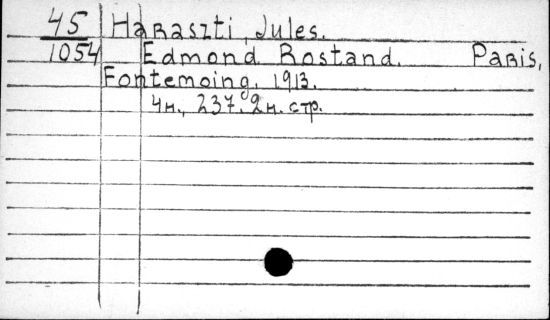 45 Haraszti, Jules.
1054 Edmond Rostand. Paris,
Fontemoing, 1913.
4н., 237, 2н. стр.